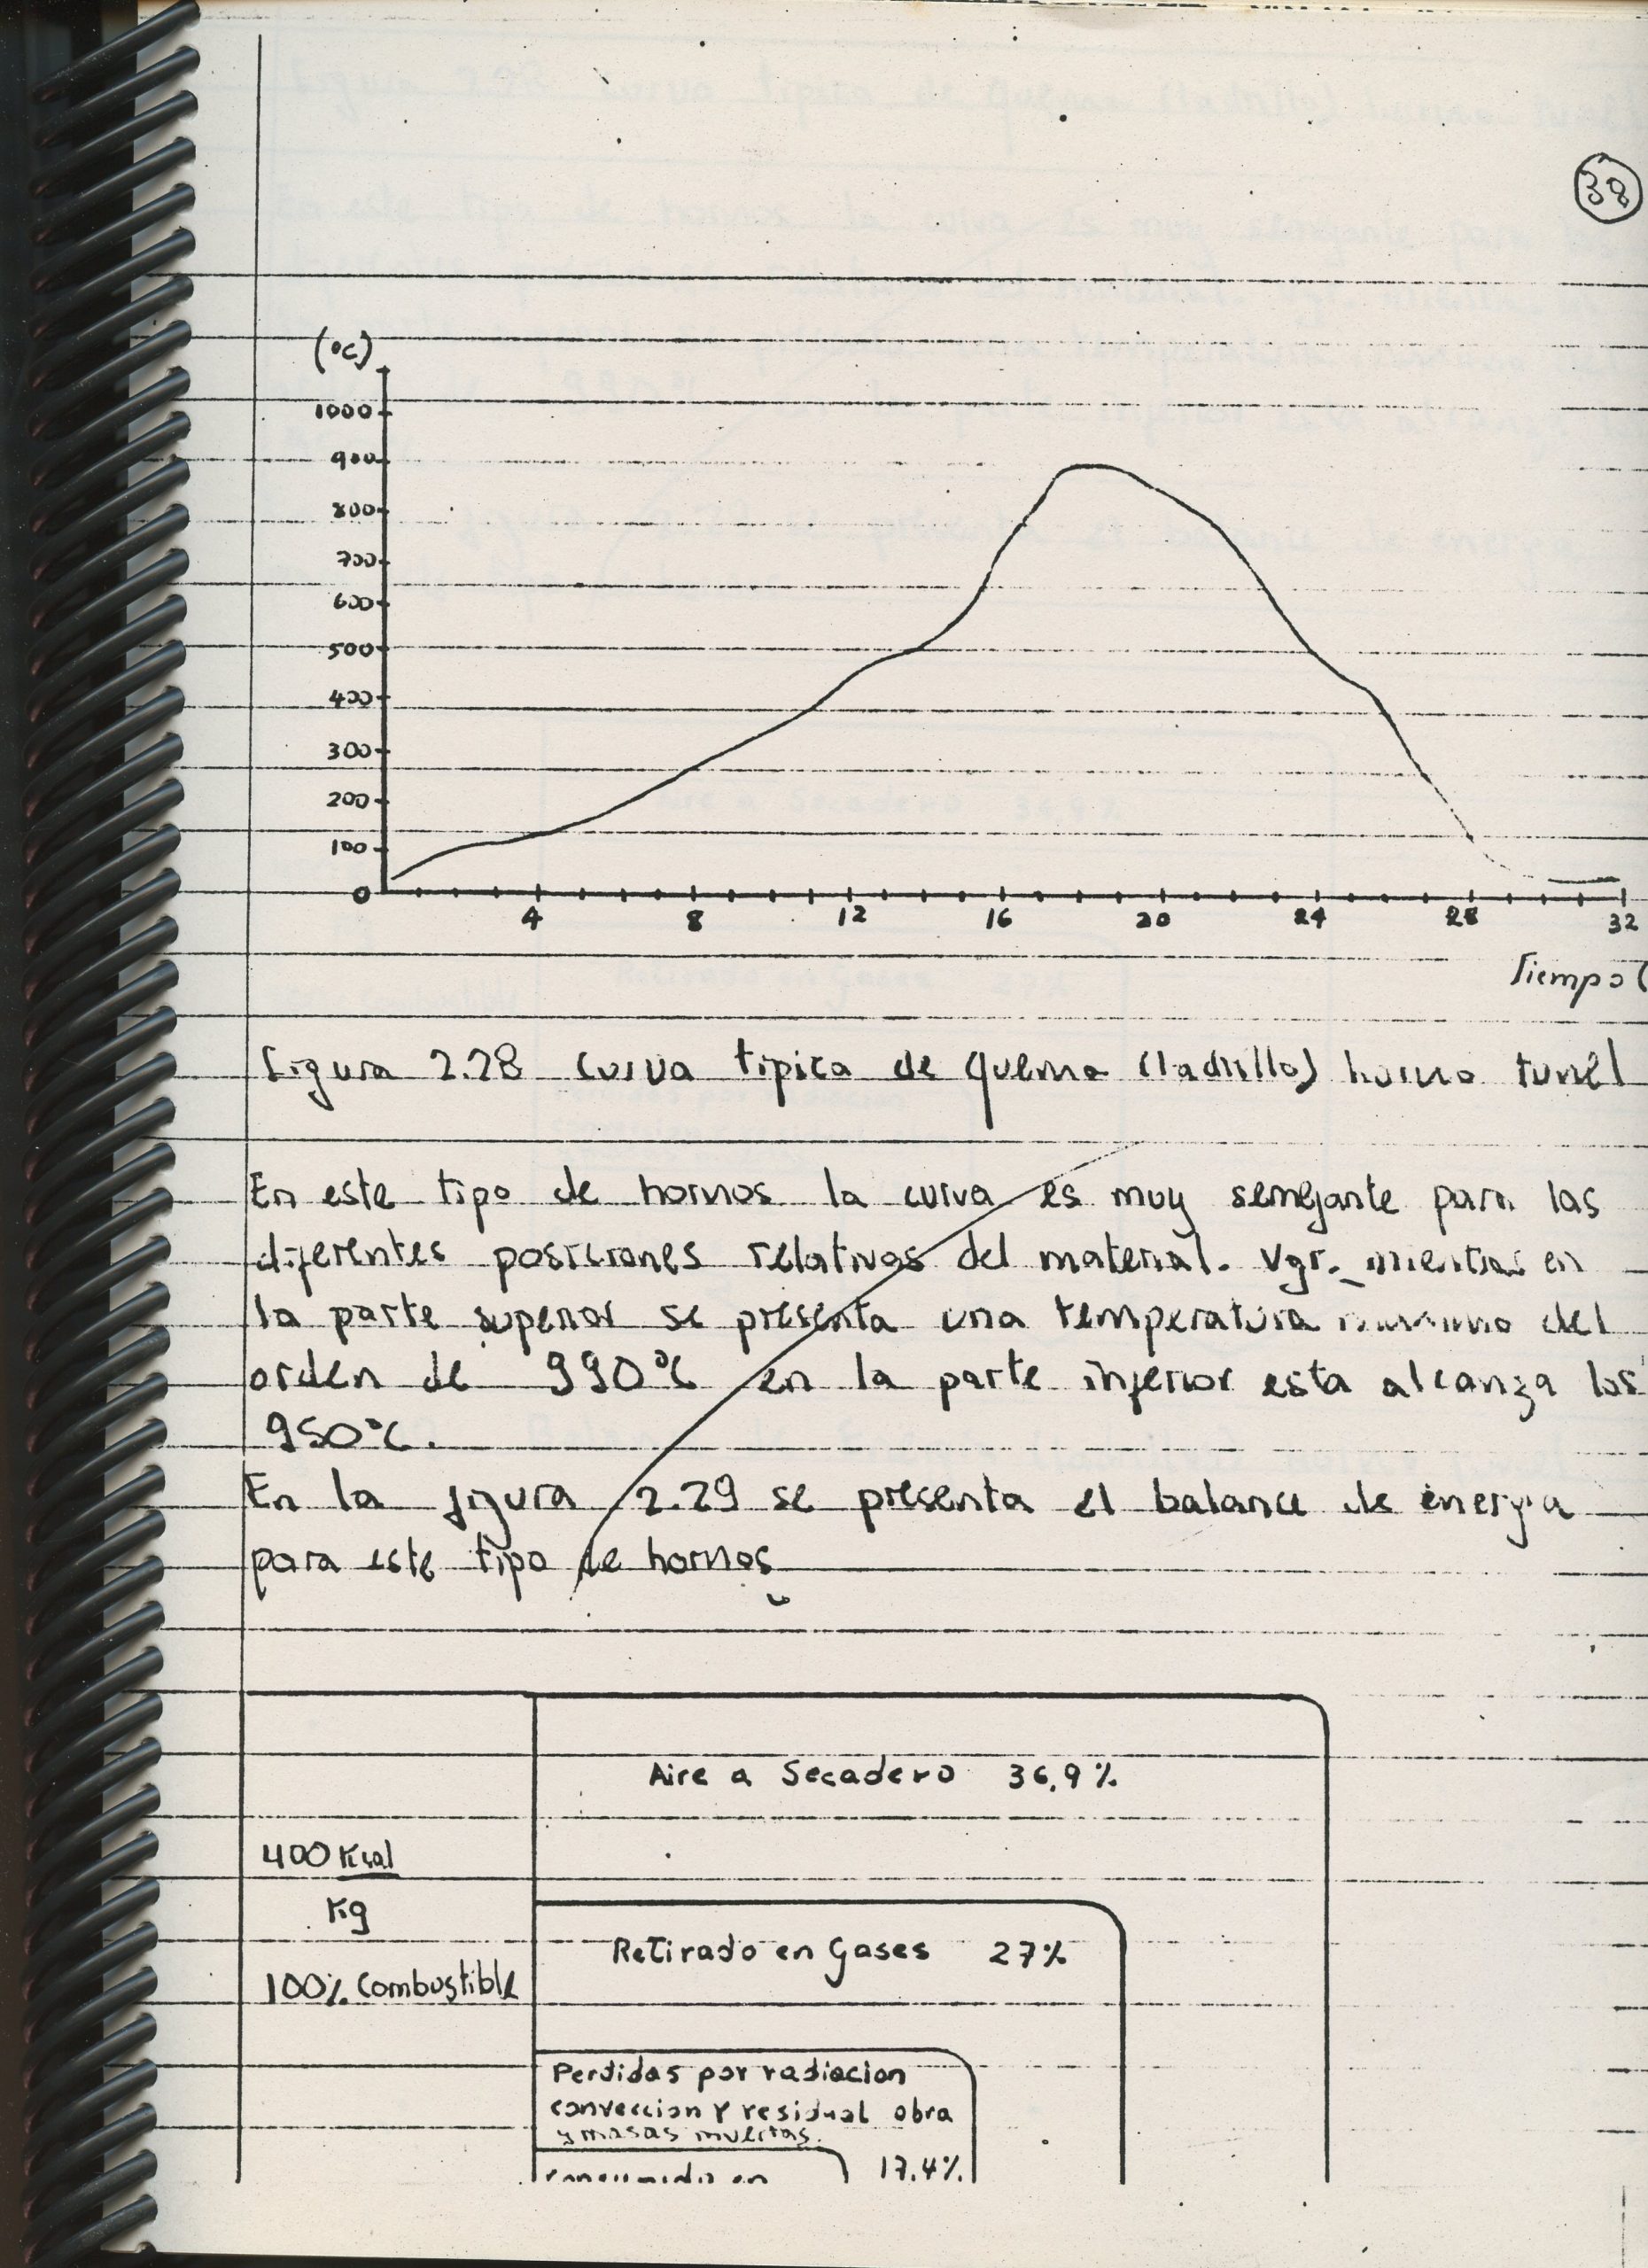 38
(°C)
1000
900
800
700
600
500
400
300
200
100
0
4 8 12 16 20 24 28 32
Tiempo (
Figura 2.28 Curva tipica de Quema (ladrillo) horno tunel
En este tipo de hornos la curva es muy semejante para las
diferentes posiciones relativas del material. Vgr. mientras en
la parte superior se presenta una temperatura del
orden de 990°C en la parte inferior esta alcanza los
950°C.
En la figura 2.29 se presenta el balance de energia
para este tipo de hornos
Aire a Secadero 36,9%
400 Kcal
Kg
Retirado en Gases 27%
100% Combustible
Perdidas por radiacion
conveccion y residual obra
y masas muertas.
17.4%
en